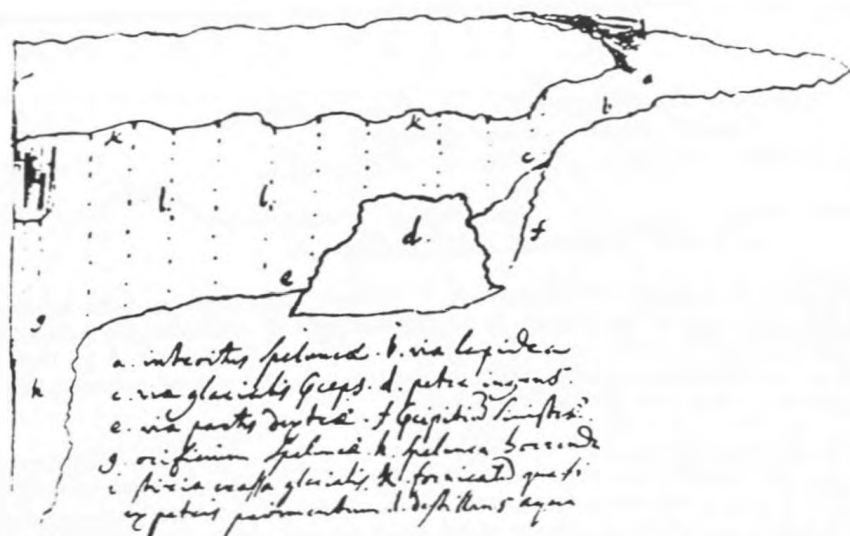 a
b
k
k
c
l.
l.
d.
f
e
g
h
a. introitus speluncæ. b. via lapidea
c. via glacialis præceps. d. petra ingens.
e. via partis dextræ f præcipitiū sinistræ
g. orificium speluncæ h. spelunca horrenda
i stiria crassa glacialis k. fornicatū quasi
ex petris l. destillans aqua